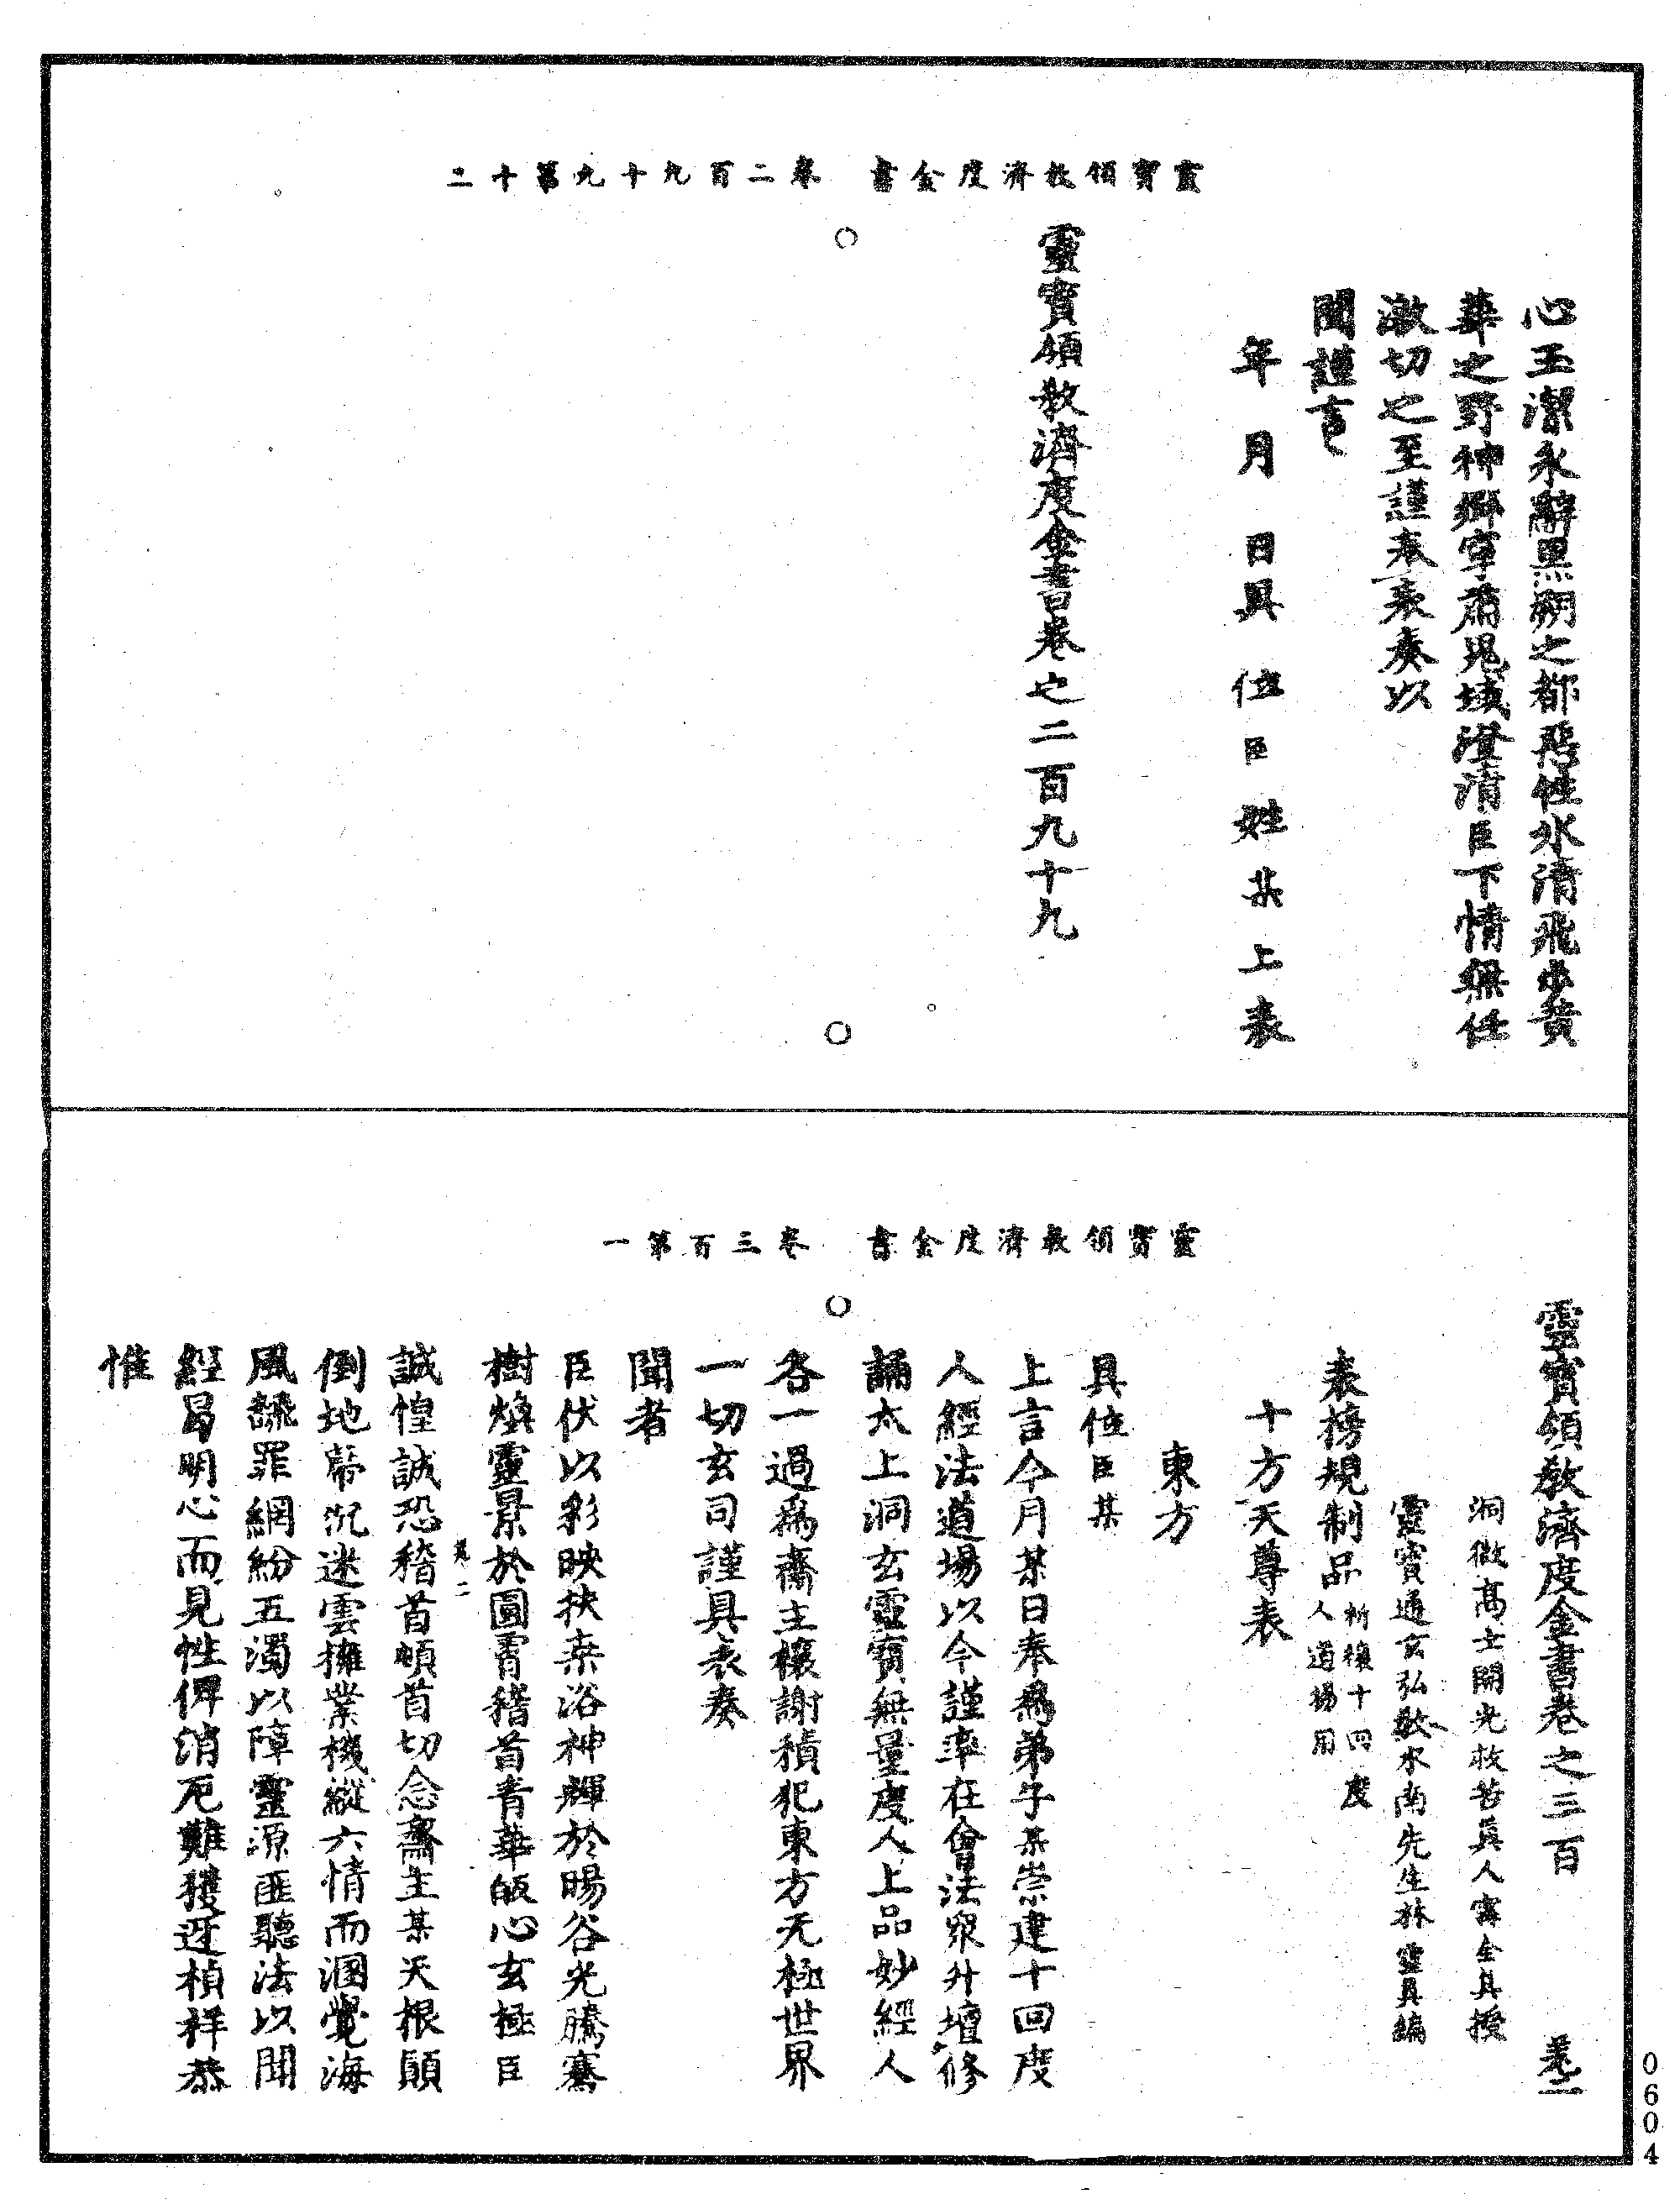 靈寶領教濟度金書　卷二百九十九第十二
心玉潔永辭黑朔之都恬性氷清飛步黄
華之野神鄉寧肅鬼域澄清臣下情無任
激切之至謹奉表奏以
聞謹言
年　月　日具　位臣姓某上表
靈寶領教濟度金書卷之二百九十九
靈寶領教濟度金書　卷三百第一
靈寶領教濟度金書卷之三百
洞微高士開光救苦眞人寗全眞授
靈寶通玄弘教水南先生林靈眞編
表榜規制品祈禳十回度人道場用
十方天尊表
東方
具位臣某
上言今月某日奉爲弟子某崇建十回度
人經法道場以今謹率在會法衆升壇修
誦太上洞玄靈寶無量度人上品妙經人
各一過爲齋主禳謝積犯東方无極世界
一切玄司謹具表奏
聞者
臣伏以彩映扶桒浴神輝於暘谷光騰騫
樹煥靈景於圓霄稽首青華皈心玄極臣
誠惶誠恐稽首頓首切念齋主某天根顚
倒地蔕沉迷雲擁業機縱六情而溷覺海
風飜罪網紛五濁以障靈源匪聽法以聞
經曷明心而見性俾消厄難獲迓楨祥恭
惟
0604